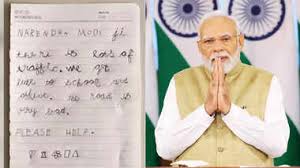 NARENDRA MODI ji
there is lots of
traffic. we get
late to school and
office. The road is
very bad.
PLEASE HELP.